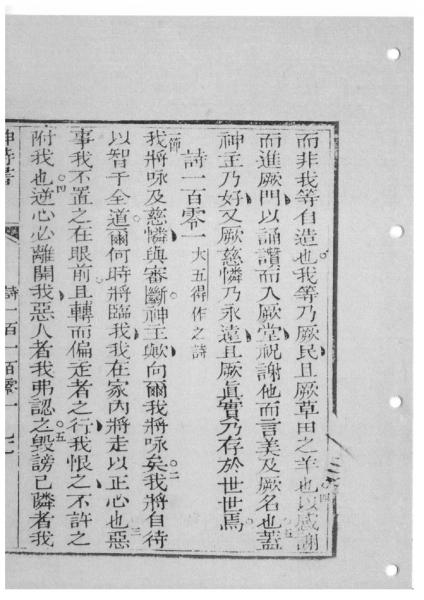 而非我等自造也我等乃厥民且厥草田之羊也以感謝
而進厥門以誦讚而入厥堂祝謝他而言美及厥名也蓋
神主乃好又厥慈憐乃永遠且厥眞實乃存於世世焉
詩一百零一 大五得作之詩
一節我將咏及慈憐與審斷神主歟向爾我將咏矣二我將自待
以智于全道爾何時將臨我我在家內將走以正心也三惡
事我不置之在眼前且轉而偏走者之行我恨之不許之
附我也四逆心必離開我惡人者我弗認之五毀謗己隣者我
神詩書 詩一百 一百零一 七七